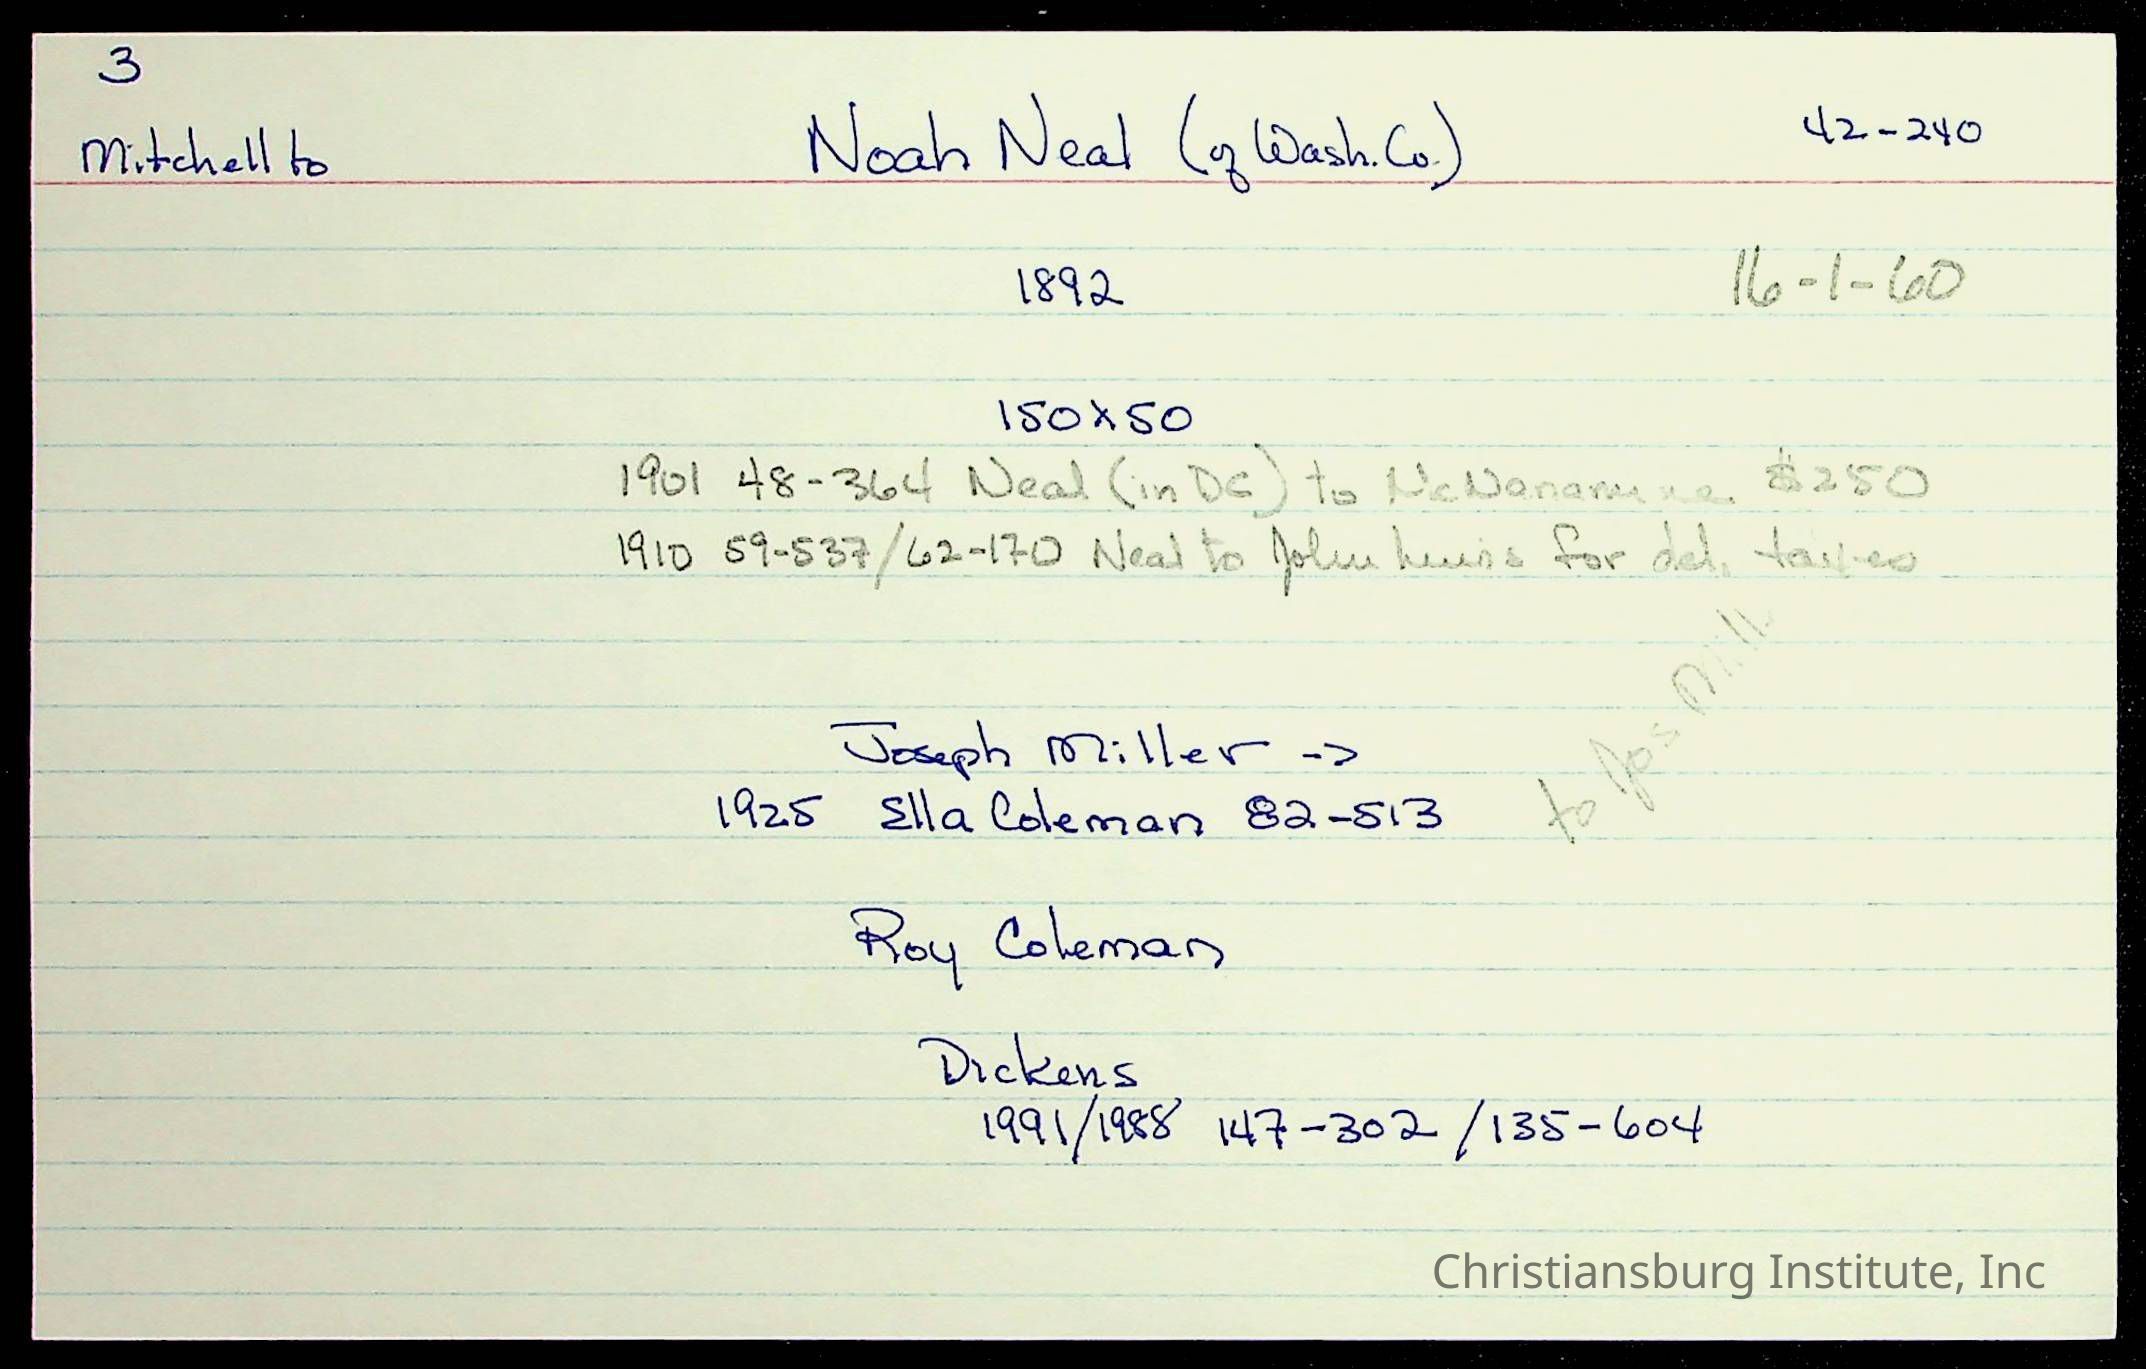 3
Mitchell to Noah Neal (of Wash. Co.) 42-240
1892 16-1-60
150x50
1901 48-364 Neal (in DC) to $250
1910 59-537/62-170 Neal to John for del. taxes
to Jos Mill
Joseph Miller ->
1925 Ella Coleman 82-513
Roy Coleman
Dickens
1991/1988 147-302 /135-604
Christiansburg Institute, Inc